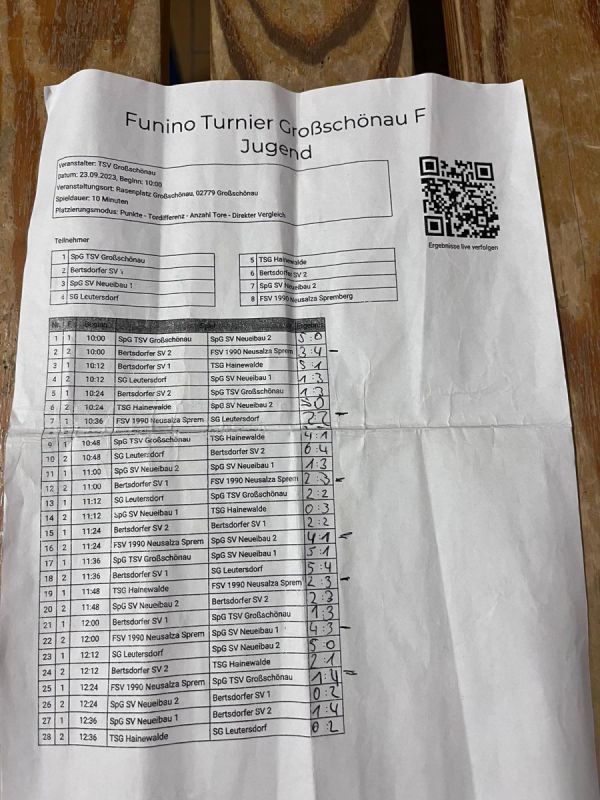 Funino Turnier Großschönau F
Jugend
Veranstalter: TSV Großschönau
Datum: 23.09.2023, Beginn: 10:00
Veranstaltungsort: Rasenplatz Großschönau, 02779 Großschönau
Spieldauer: 10 Minuten
Platzierungsmodus: Punkte - Tordifferenz - Anzahl Tore - Direkter Vergleich
Ergebnisse live verfolgen
Teilnehmer
1 SpG TSV Großschönau 5 TSG Hainewalde
2 Bertsdorfer SV 1 6 Bertsdorfer SV 2
3 SpG SV Neueibau 1 7 SpG SV Neueibau 2
4 SG Leutersdorf 8 FSV 1990 Neusalza Spremberg
Nr. F Beginn Spiel Ergebnis
1 1 10:00 SpG TSV Großschönau SpG SV Neueibau 2 5:0
2 2 10:00 Bertsdorfer SV 2 FSV 1990 Neusalza Sprem 3:4 -
3 1 10:12 Bertsdorfer SV 1 TSG Hainewalde 5:1
4 2 10:12 SG Leutersdorf SpG SV Neueibau 1 1:3
5 1 10:24 Bertsdorfer SV 2 SpG TSV Großschönau 1:3
6 2 10:24 TSG Hainewalde SpG SV Neueibau 2 5:0
7 1 10:36 FSV 1990 Neusalza Sprem SG Leutersdorf 2:2 -
9 1 10:48 SpG TSV Großschönau TSG Hainewalde 4:1
10 2 10:48 SG Leutersdorf Bertsdorfer SV 2 0:4
11 1 11:00 SpG SV Neueibau 2 SpG SV Neueibau 1 1:3
12 2 11:00 Bertsdorfer SV 1 FSV 1990 Neusalza Sprem 2:3 -
13 1 11:12 SG Leutersdorf SpG TSV Großschönau 2:2
14 2 11:12 SpG SV Neueibau 1 TSG Hainewalde 0:3
15 1 11:24 Bertsdorfer SV 2 Bertsdorfer SV 1 2:2
16 2 11:24 FSV 1990 Neusalza Sprem SpG SV Neueibau 2 4:1 -
17 1 11:36 SpG TSV Großschönau SpG SV Neueibau 1 5:1
18 2 11:36 Bertsdorfer SV 1 SG Leutersdorf 5:4
19 1 11:48 TSG Hainewalde FSV 1990 Neusalza Sprem 2:3 -
20 2 11:48 SpG SV Neueibau 2 Bertsdorfer SV 2 2:3
21 1 12:00 Bertsdorfer SV 1 SpG TSV Großschönau 1:3
22 2 12:00 FSV 1990 Neusalza Sprem SpG SV Neueibau 1 4:3 -
23 1 12:12 SG Leutersdorf SpG SV Neueibau 2 5:0
24 2 12:12 Bertsdorfer SV 2 TSG Hainewalde 2:1
25 1 12:24 FSV 1990 Neusalza Sprem SpG TSV Großschönau 1:4 -
26 2 12:24 SpG SV Neueibau 2 Bertsdorfer SV 1 0:2
27 1 12:36 SpG SV Neueibau 1 Bertsdorfer SV 2 1:4
28 2 12:36 TSG Hainewalde SG Leutersdorf 0:2